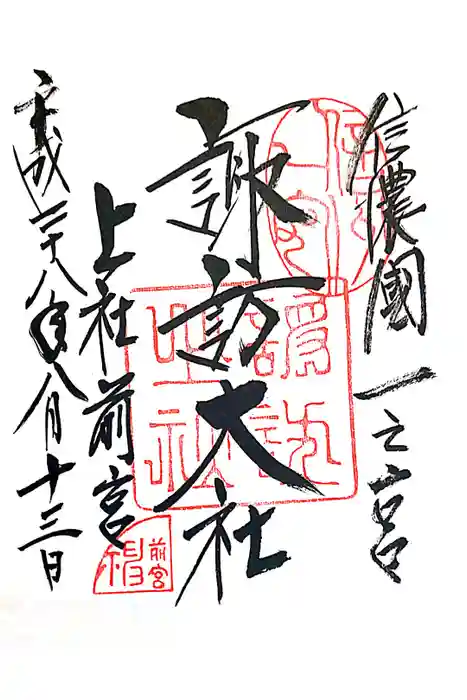 信濃國一之宮
諏訪大社
上社前宮
平成二十八年八月十三日
前宮